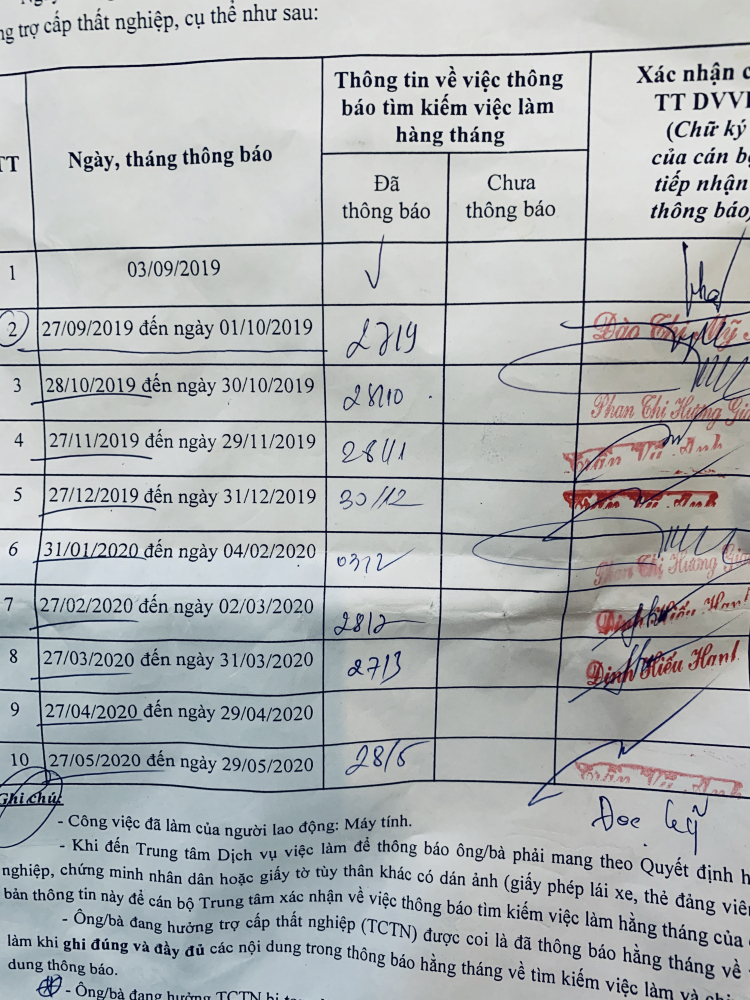 ng trợ cấp thất nghiệp, cụ thể như sau:
TT
Ngày, tháng thông báo
Thông tin về việc thông
báo tìm kiếm việc làm
hàng tháng
Đã
thông báo
Chưa
thông báo
Xác nhận c
TT DVVL
(Chữ ký
của cán bộ
tiếp nhận
thông báo)
1 03/09/2019
2 27/09/2019 đến ngày 01/10/2019 27/9
Đào Thị Mỹ
3 28/10/2019 đến ngày 30/10/2019 28/10
Phan Thị Hương Gia
4 27/11/2019 đến ngày 29/11/2019 28/11
Trần Vũ Anh
5 27/12/2019 đến ngày 31/12/2019 30/12
Trần Vũ Anh
6 31/01/2020 đến ngày 04/02/2020 03/2
Phan Thị Hương Gia
7 27/02/2020 đến ngày 02/03/2020 28/2
Đinh Hiếu Hanh
8 27/03/2020 đến ngày 31/03/2020 27/3
Đinh Hiếu Hanh
9 27/04/2020 đến ngày 29/04/2020
10 27/05/2020 đến ngày 29/05/2020 28/5
Trần Vũ Anh
Đọc kỹ
Ghi chú:
- Công việc đã làm của người lao động: Máy tính.
- Khi đến Trung tâm Dịch vụ việc làm để thông báo ông/bà phải mang theo Quyết định h
nghiệp, chứng minh nhân dân hoặc giấy tờ tùy thân khác có dán ảnh (giấy phép lái xe, thẻ đảng viên
bản thông tin này để cán bộ Trung tâm xác nhận về việc thông báo tìm kiếm việc làm hằng tháng của
- Ông/bà đang hưởng trợ cấp thất nghiệp (TCTN) được coi là đã thông báo hằng tháng về
làm khi ghi đúng và đầy đủ các nội dung trong thông báo hằng tháng về tìm kiếm việc làm và
dung thông báo.
- Ông/bà đang hưởng TCTN bị